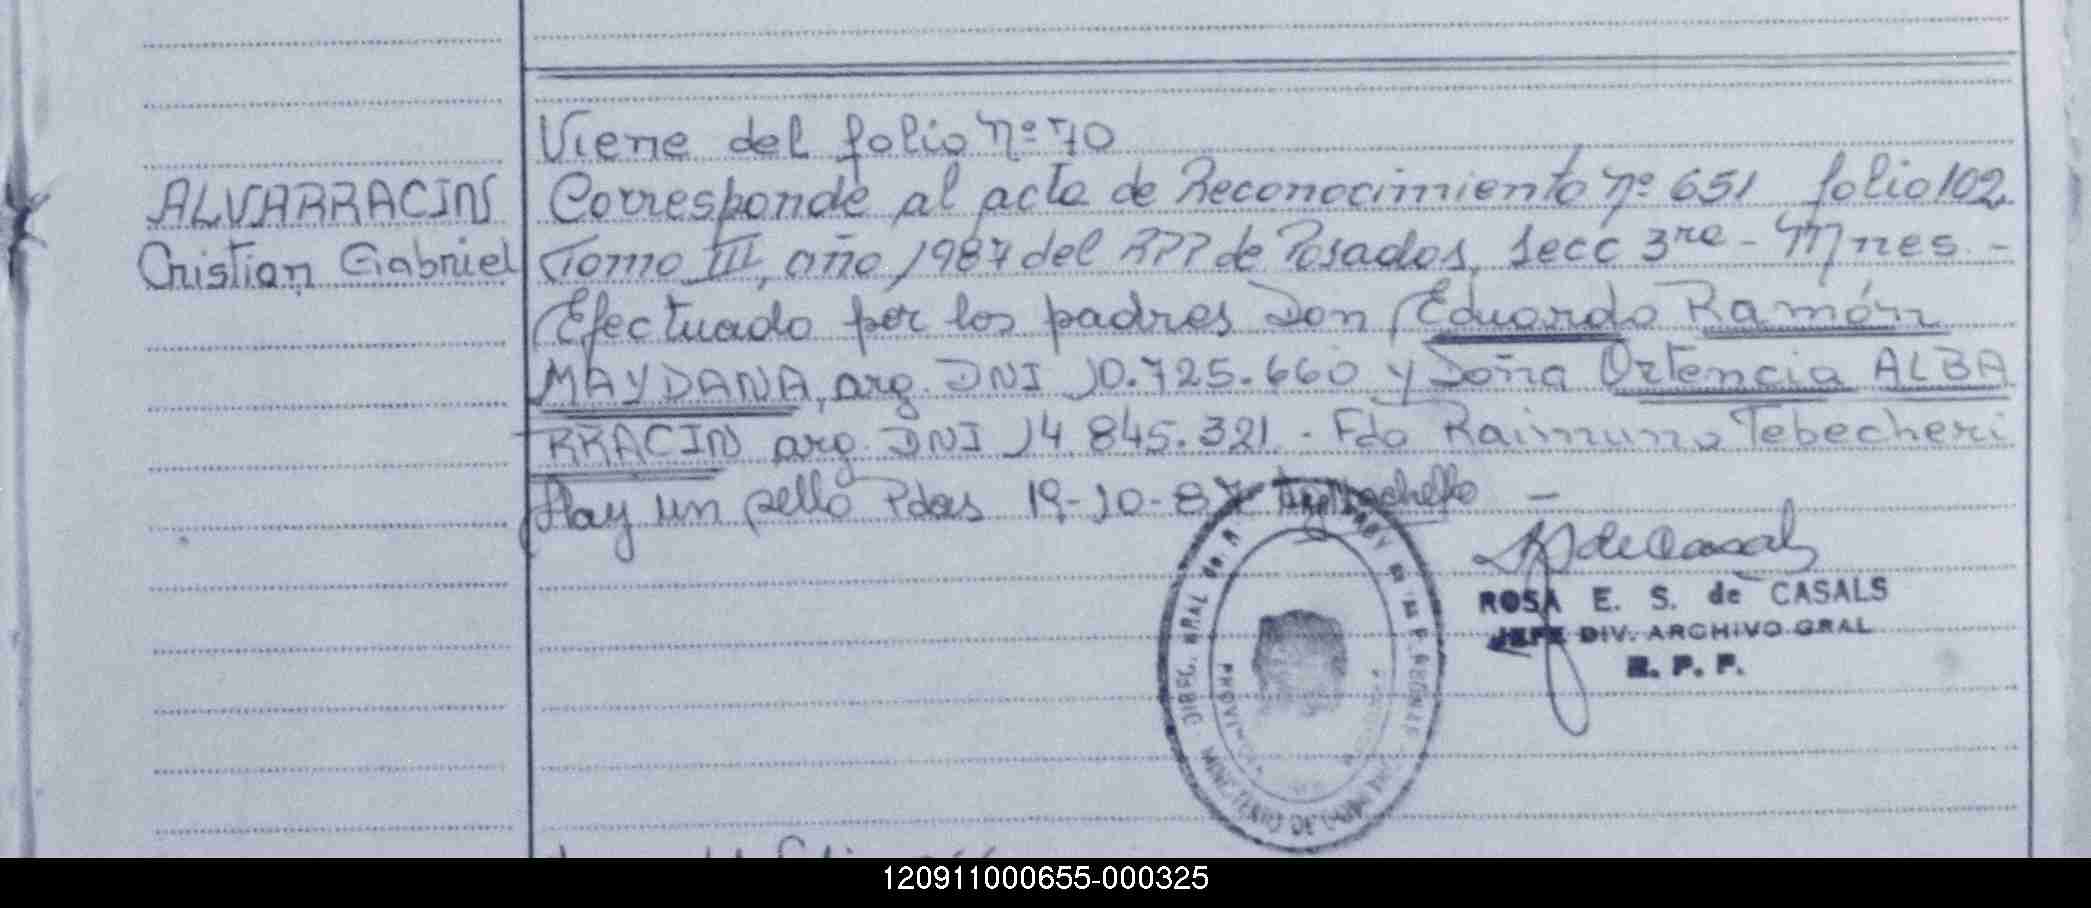 Viene del folio nº 70
ALVARRACIN Corresponde al acta de Reconocimiento nº 651 folio 102
Cristian Gabriel Tomo III, año 1987 del RPP de Posadas, Secc 3ra - Mnes. -
Efectuado por los padres Don Eduardo Ramón
MAYDANA, arg. DNI 10.725.660 y Doña Ortencia ALBA
RRACIN arg. DNI 14.845.321. - Fdo Raimuno Tebecheri
Hay un sello Pdas 19-10-87
de Casals
ROSA E. S. de CASALS
JEFE DIV. ARCHIVO GRAL
R. P. P.
MINISTERIO DE
120911000655-000325